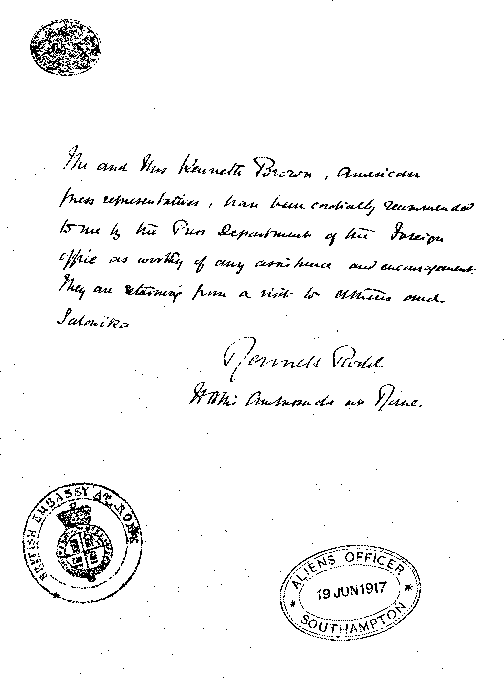 Mr and Mrs Kenneth Brown, American
press representatives, have been cordially recommended
to me by the Press Department of the Foreign
Office as worthy of any assistance and encouragement.
They are returning from a visit to Athens and
Salonika
Rennell Rodd
HBM's Ambassador at Rome.
BRITISH EMBASSY AT ROME
ALIENS OFFICER
19 JUN 1917
SOUTHAMPTON